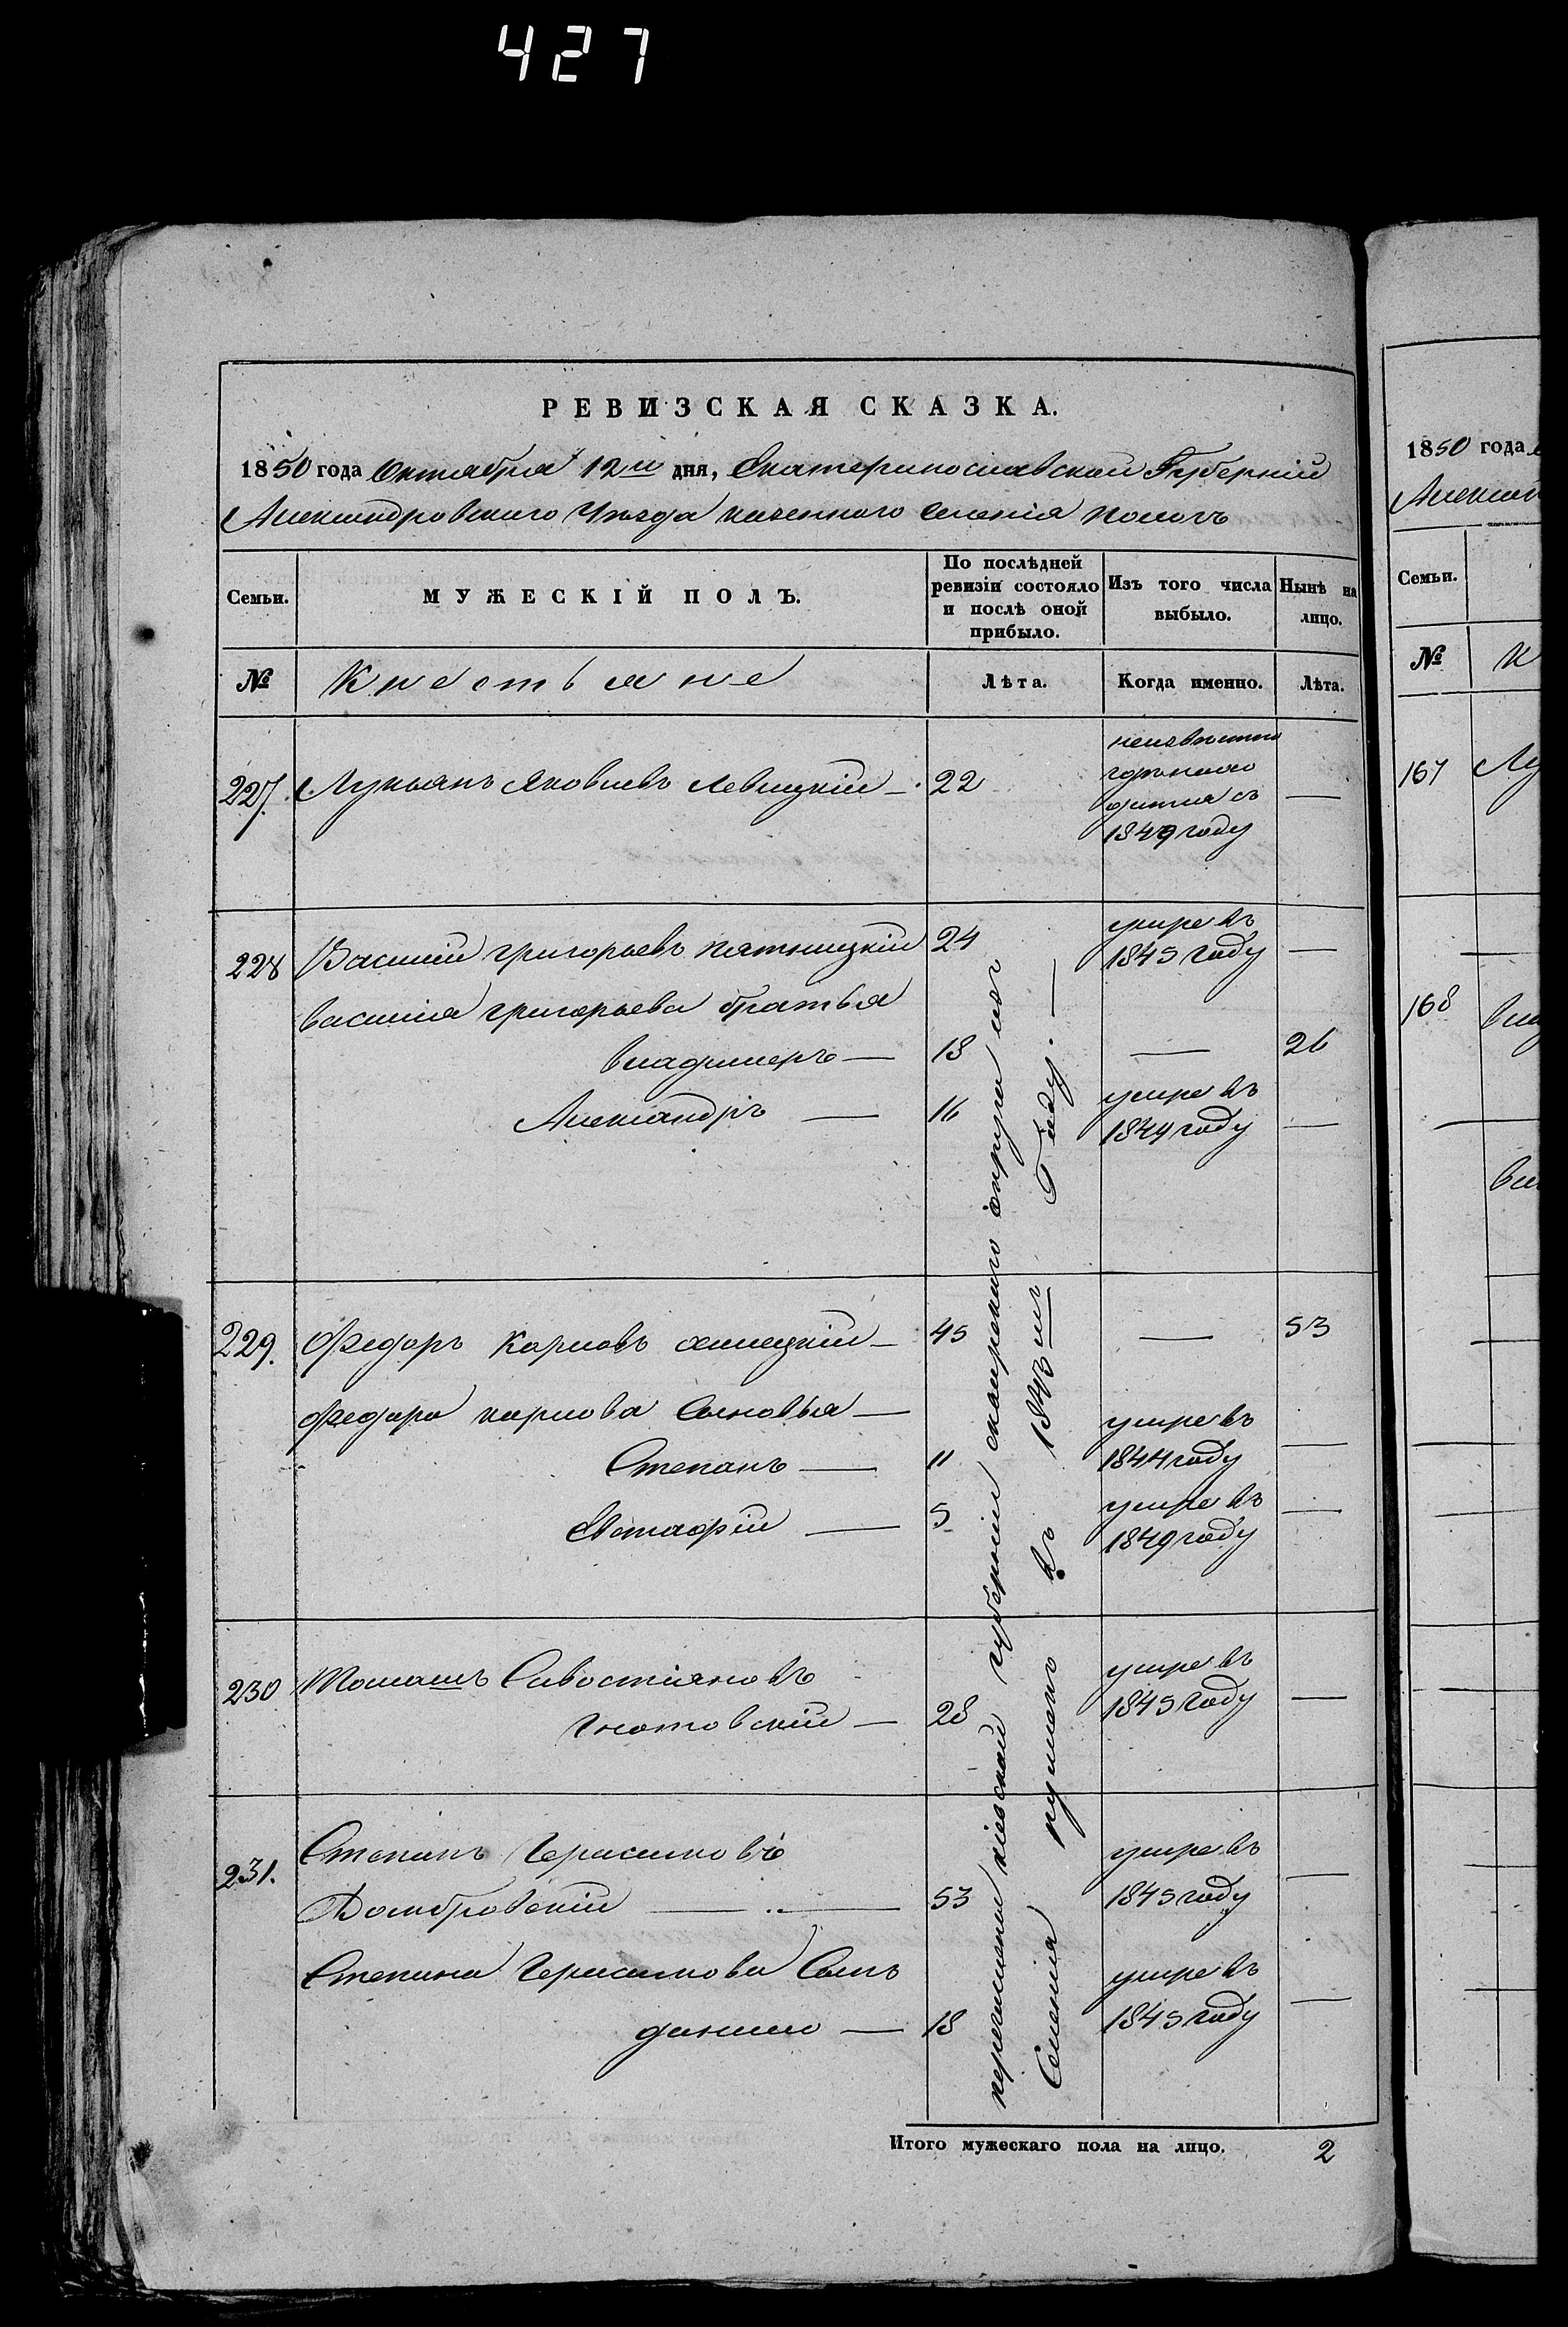 427
РЕВИЗСКАЯ СКАЗКА.
1850 года Октября 12го дня, Екатеринославской Губерніи
Александровскаго Уѣзда казеннаго Селенія Пологъ
Семьи.
МУЖЕСКІЙ ПОЛЪ.
По послѣдней ревизіи состояло и послѣ оной прибыло.
Изъ того числа выбыло.
Нынѣ на лицо.
№
Крестьяне
Лѣта.
Когда именно.
Лѣта.
227. Лукьянъ Яковлевъ Левицкій — 22
неизвѣстно
съ
1849 году —
228 Василій Григорьевъ Пятницкій 24 умре въ
1845 году —
Василія Григорьева братья
Владимеръ — 18 — 26
Александръ — 16 умре въ
1849 году —
229. Федоръ Карповъ — 45 — 53
Федора Карпова Сыновья —
Степанъ — 11 умре въ
1844 году —
Евстафій — 5 умре въ
1849 году —
230 Томашъ Савостіяновъ
Гнатовскій — 28 умре въ
1845 году —
231. Степанъ Герасимовъ
Домбровскій — 53 умре въ
1845 году —
Степана Герасимова Сынъ
Данило — 18 умре въ
1845 году —
перечислены Кіевской губерніи округа изъ
Селенія въ 1843мъ Году. —
Итого мужескаго пола на лицо. 2
1850 года
Семьи.
№
К
167 Лу
168